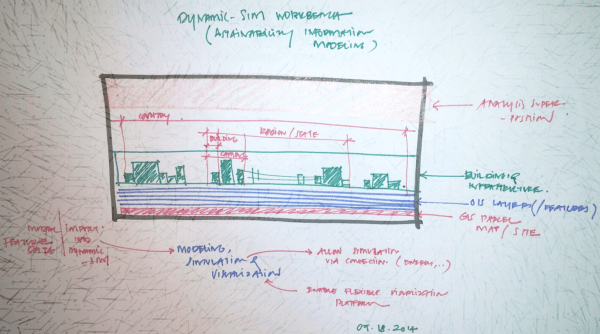 DYNAMIC-SIM WORKBENCH
(SUSTAINABILITY INFORMATION
MODELING)
COUNTRY
REGION/STATE
BUILDING
CAMPUS
ANALYSIS SUPER-
-POSITION
BUILDING &
INFRASTRUCTURE.
GIS LAYERS (/FEATURES)
GIS PARCEL
MAP/SITE
MODEL
FEATURE
IMPORT
INTO
DYNAMIC
-SIM
MODELING,
SIMULATION &
VISUALIZATION
ALLOW SIMULATION
VIA CONNECTION (ENERGY,..)
ENABLE FLEXIBLE VISUALIZATION
PLATFORM
09.18.2014